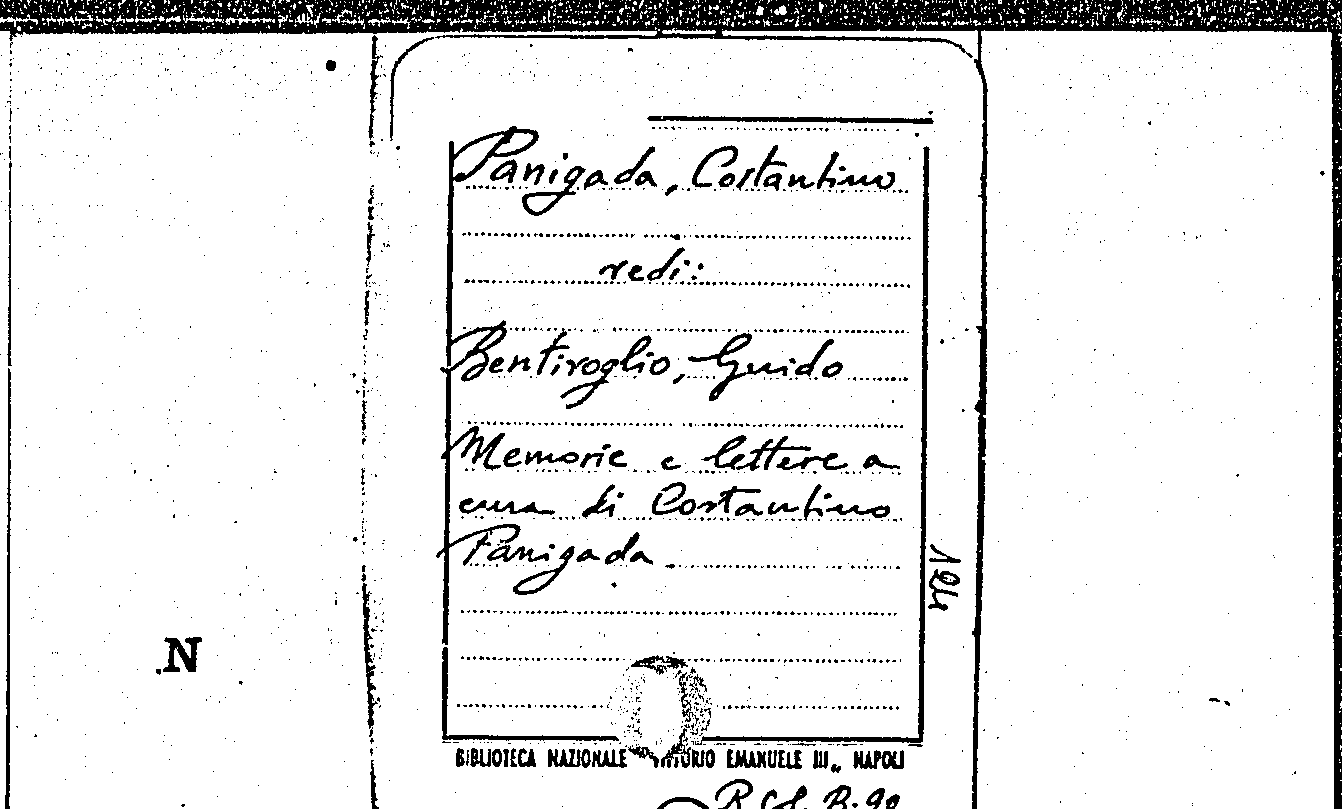 Panigada, Costantino
vedi:
Bentivoglio, Guido
Memorie e lettere a
cura di Costantino
Panigada.
N
BIBLIOTECA NAZIONALE VITTORIO EMANUELE III„ NAPOLI